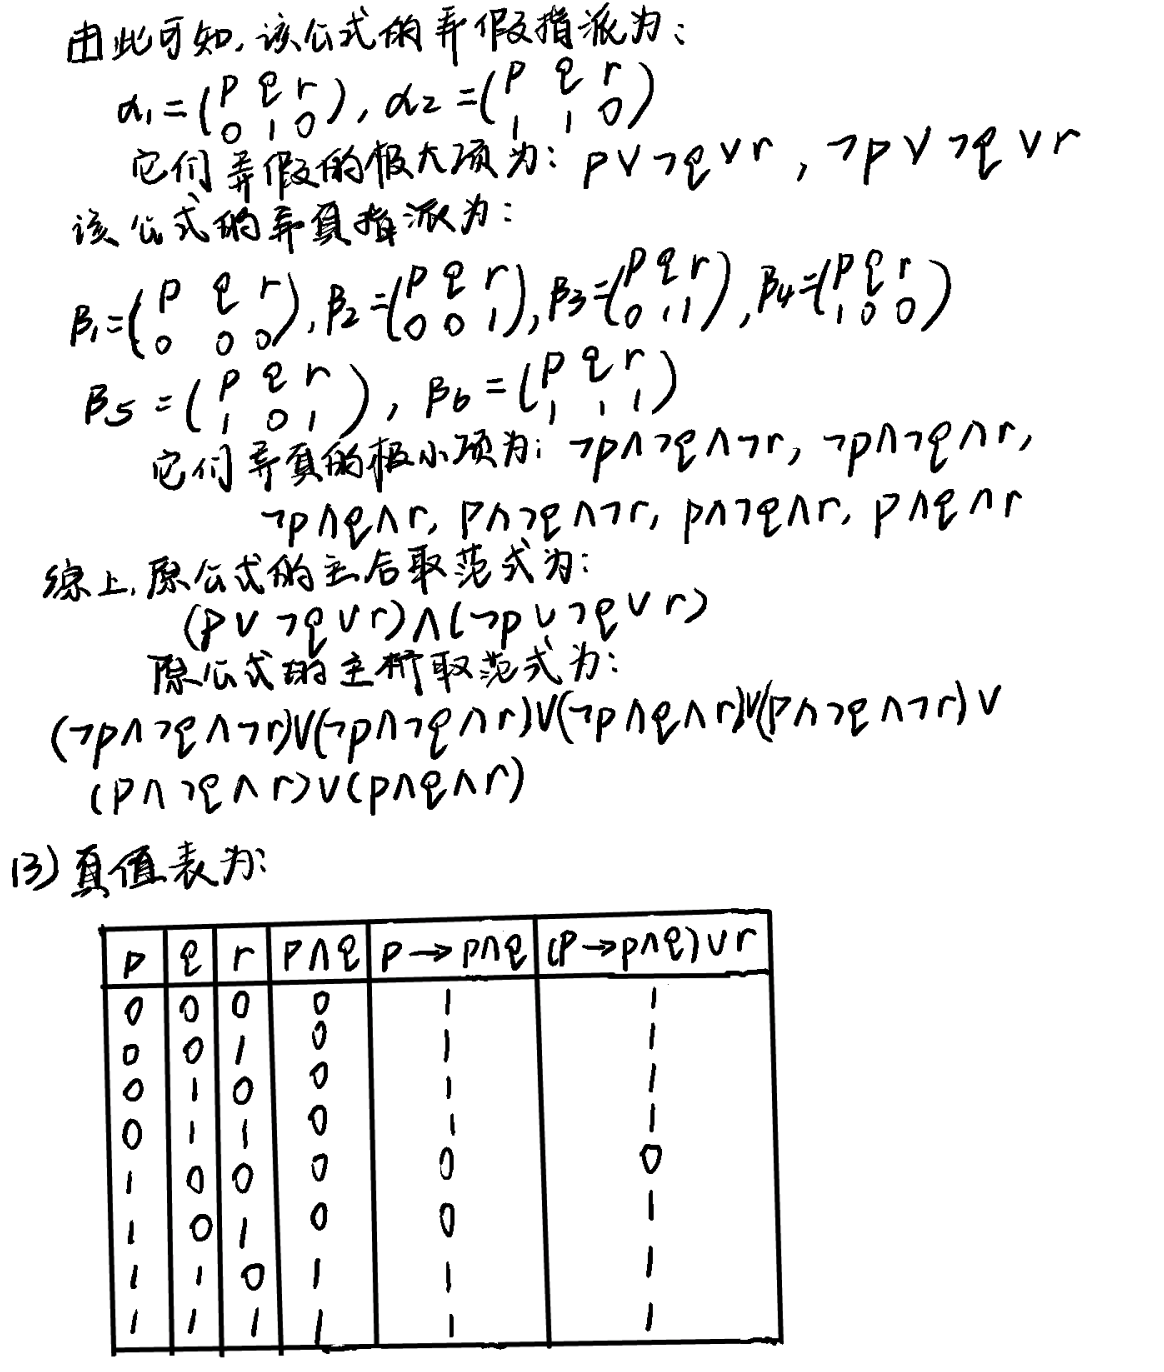 由此可知,该公式的弄假指派为:
α₁=(p q r
0 1 0), α₂=(p q r
1 1 0)
它们弄假的极大项为: p∨¬q∨r , ¬p∨¬q∨r
该公式的弄真指派为:
β₁=(p q r
0 0 0), β₂=(p q r
0 0 1), β₃=(p q r
0 1 1), β₄=(p q r
1 0 0)
β₅=(p q r
1 0 1), β₆=(p q r
1 1 1)
它们弄真的极小项为: ¬p∧¬q∧¬r, ¬p∧¬q∧r,
¬p∧q∧r, p∧¬q∧¬r, p∧¬q∧r, p∧q∧r
综上,原公式的主合取范式为:
(p∨¬q∨r)∧(¬p∨¬q∨r)
原公式的主析取范式为:
(¬p∧¬q∧¬r)∨(¬p∧¬q∧r)∨(¬p∧q∧r)∨(p∧¬q∧¬r)∨
(p∧¬q∧r)∨(p∧q∧r)
(3) 真值表为:
p q r p∧q p→p∧q (p→p∧q)∨r
0 0 0 0 1 1
0 0 1 0 1 1
0 1 0 0 1 1
0 1 1 0 1 1
1 0 0 0 0 0
1 0 1 0 0 1
1 1 0 1 1 1
1 1 1 1 1 1